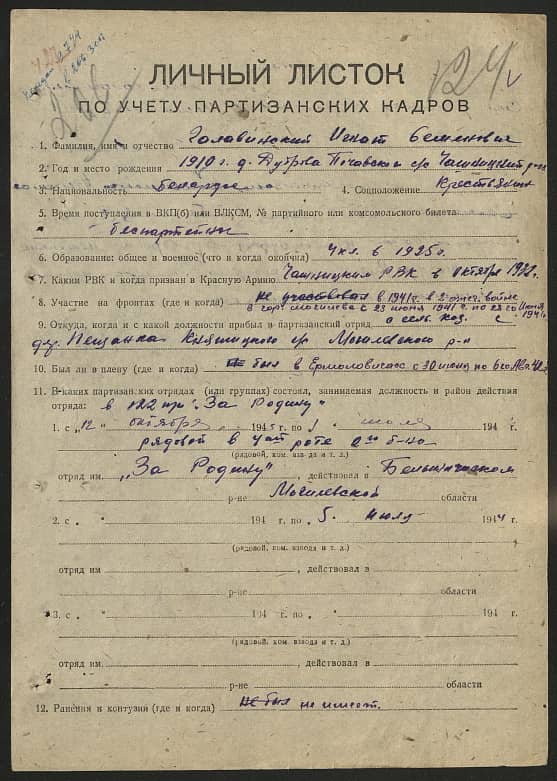 ЛИЧНЫЙ ЛИСТОК
124
ПО УЧЕТУ ПАРТИЗАНСКИХ КАДРОВ
1. Фамилия, имя и отчество Головинский Игнат Семенович
2. Год и место рождения 1910 г. д. Дуброва Почавской с/с Чашникский р-он
3. Национальность Беларус 4. Соцположение Крестьянин
5. Время поступления в ВКП(б) или ВЛКСМ, № партийного или комсомольского билета
беспартейны
6. Образование: общее и военное (что и когда окончил) 4 кл. в 1925 г.
7. Каким РВК и когда призван в Красную Армию Чашницким РВК в октября
8. Участие на фронтах (где и когда) не участвовал в 1941 г. в войне
в гор. Могилева с 23 июня 1941 г. по
9. Откуда, когда и с какой должности прибыл в партизанский отряд с 1941
дер. Пещанка Княжицкого с/с Могилевского р-н
10. Был ли в плену (где и когда) был в Ермоловисах с 30 июня по 6
11. В каких партизанских отрядах (или группах) состоял, занимаемая должность и район действия
отряда: в 122 пр "За Родину"
1. с „12" октября 194 г. по июля 194 г.
рядовой в роте б-на
(рядовой, ком. взвода и т. д.)
отряд им „За Родину", действовал в Белыничском
р-не Могилевской области
2. с 194 г. по 5. июля 1944 г.
(рядовой, ком. взвода и т. д.)
отряд им , действовал в
р-не области
3. с 194 г. по 194 г.
(рядовой, ком. взвода и т. д.)
отряд им , действовал в
р-не области
12. Ранения и контузии (где и когда) не был не имеет.